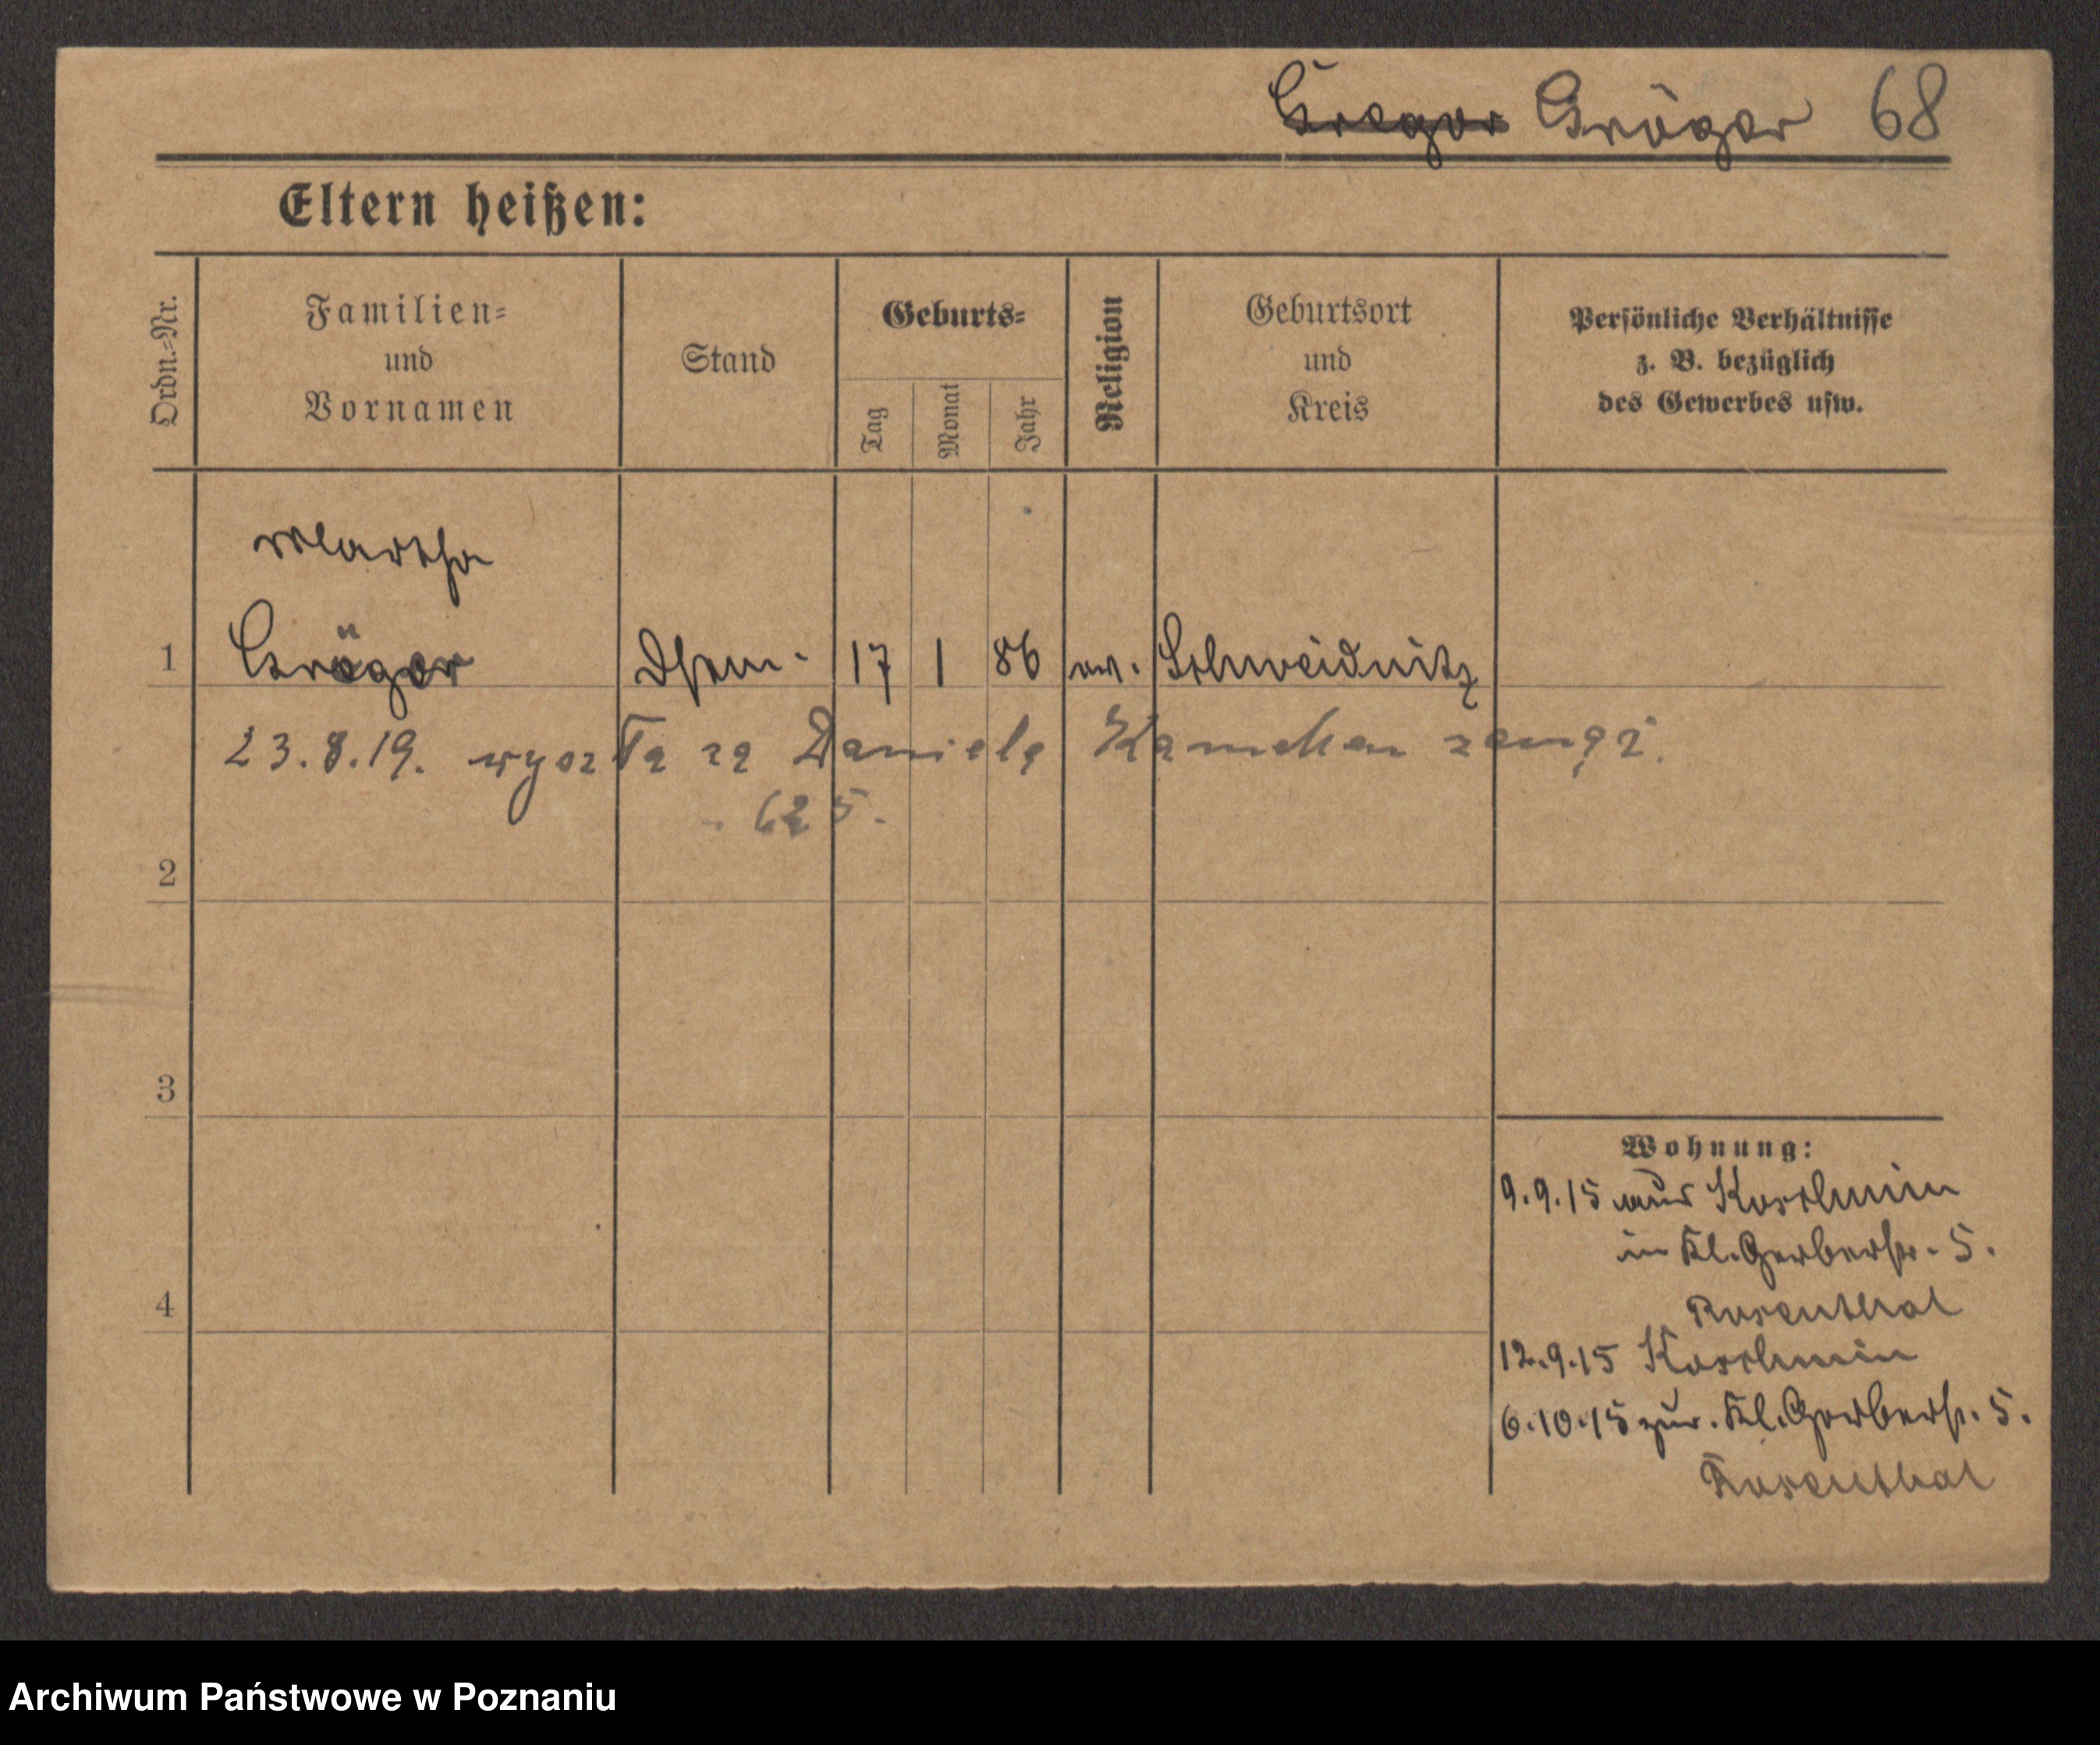 Greger Gröger 68
Eltern heißen:
Ordn.-Nr.
Familien-
und
Vornamen
Stand
Geburts-
Tag
Monat
Jahr
Religion
Geburtsort
und
Kreis
Persönliche Verhältnisse
z. B. bezüglich
des Gewerbes usw.
Martha
1 Gröger 17 1 86 Schweidnitz
23.8.19. wyszła za Daniela
625.
2
3
4
Wohnung:
9.9.15 aus Koschmin
in Kl. Gerberstr. 5.
Rosenthal
12.9.15 Koschmin
6.10.15 zur. Kl. Gerberstr. 5.
Rosenthal
Archiwum Państwowe w Poznaniu